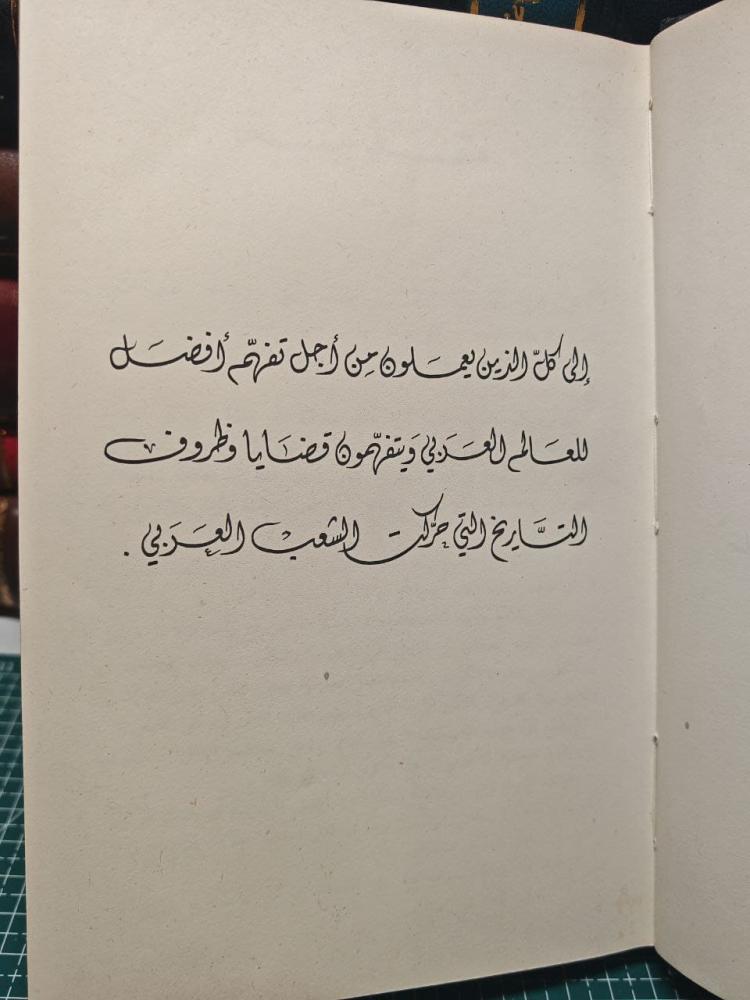 إلى كلّ الذين يعملون مِن أجل تفهّم أفضل
للعالم العَرَبي وَيتفهّمون قضَايا وَظروف
التَّاريخ التي حرّكت الشعب العِرَبي .